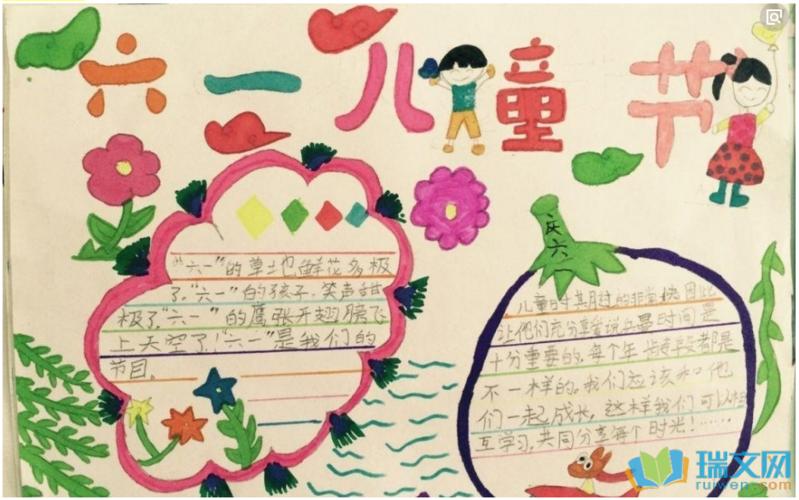 六一儿童节
"六一"的草地鲜花多极
了,"六一"的孩子,笑声甜
极了,"六一"的鹰张开翅膀飞
上天空了!"六一"是我们的
节目。
庆六一
儿童时期过的非常快因此
让他们充分享受说玩耍时间是
十分重要的,每个年龄段都是
不一样的,我们应该和他
们一起成长,这样我们可以相
互学习,共同分享每个时光!……
瑞文网
ruiwen.com